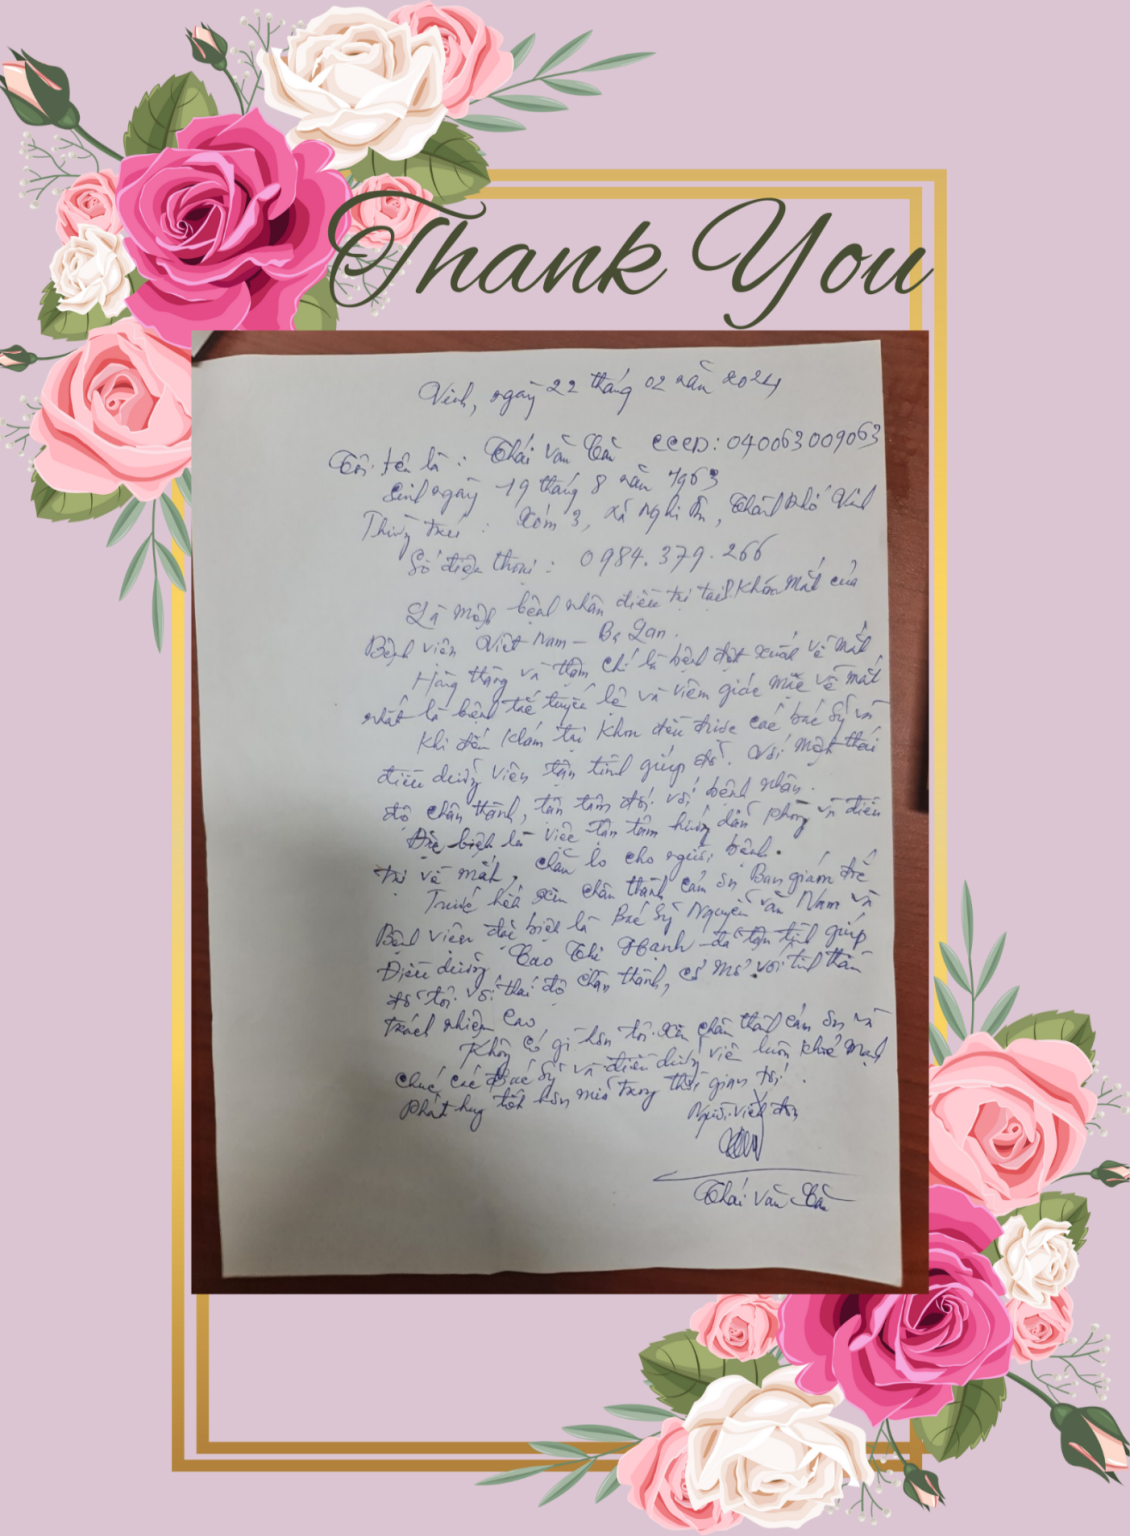 Thank You
Vinh, ngày 22 tháng 02 năm 2024
Tôi tên là: Thái Văn CCCD: 040063009063
Sinh ngày 19 tháng 8 năm 1963
Thường trú: Xóm 3, xã Nghi Ân, Thành phố Vinh
Số điện thoại: 0984.379.266
Là một bệnh nhân điều trị tại Khoa Mắt của
Bệnh viện Việt Nam - Ba Lan.
Hàng tháng và thậm chí là bệnh đột xuất về mắt,
nhất là bệnh tắc tuyến lệ và viêm giác mạc về mắt
Khi đến khám tại Khoa đều được các bác sỹ và
điều dưỡng viên tận tình giúp đỡ. Với một thái
độ chân thành, tận tâm đối với bệnh nhân.
Đặc biệt là việc tận tâm hướng dẫn phòng và điều
trị về mắt, chăm lo cho người bệnh.
Trước hết xin chân thành cám ơn Ban giám đốc
Bệnh viện đặc biệt là Bác sỹ Nguyễn Văn Nam và
Điều dưỡng Cao Thị Hạnh đã tận tình giúp
đỡ tôi với thái độ chân thành, cở mở với tinh thần
trách nhiệm cao
Không có gì hơn tôi xin chân thành cám ơn và
chúc các Bác sỹ và điều dưỡng viên luôn khoẻ mạnh
Phát huy tốt hơn nữa trong thời gian tới.
Người viết đơn
Thái Văn